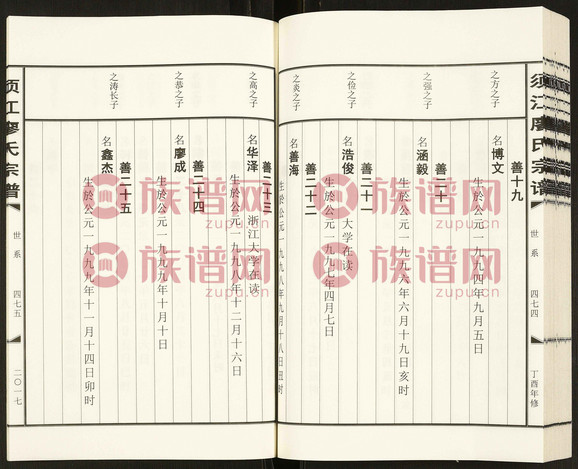 须江廖氏宗谱
世系
四七四
丁酉年修
之方之子
善十九
名博文
生於公元一九九四年九月五日
之强之子
善二十
名涵毅
生於公元一九九六年六月十九日亥时
之俭之子
善二十一
名浩俊 大学在读
生於公元一九九七年四月七日
之炎之子
善二十二
名善海
生於公元一九九八年九月十八日丑时
之高之子
善二十三
名华泽 浙江大学在读
生於公元一九九八年十二月十六日
之恭之子
善二十四
名廖成
生於公元一九九九年十月十日
之涛长子
善二十五
名鑫杰
生於公元一九九九年十一月十四日卯时
须江廖氏宗谱
世系
四七五
二〇一七
族谱网
zupu.cn
族谱网
zupu.cn
族谱网
zupu.cn
族谱网
zupu.cn